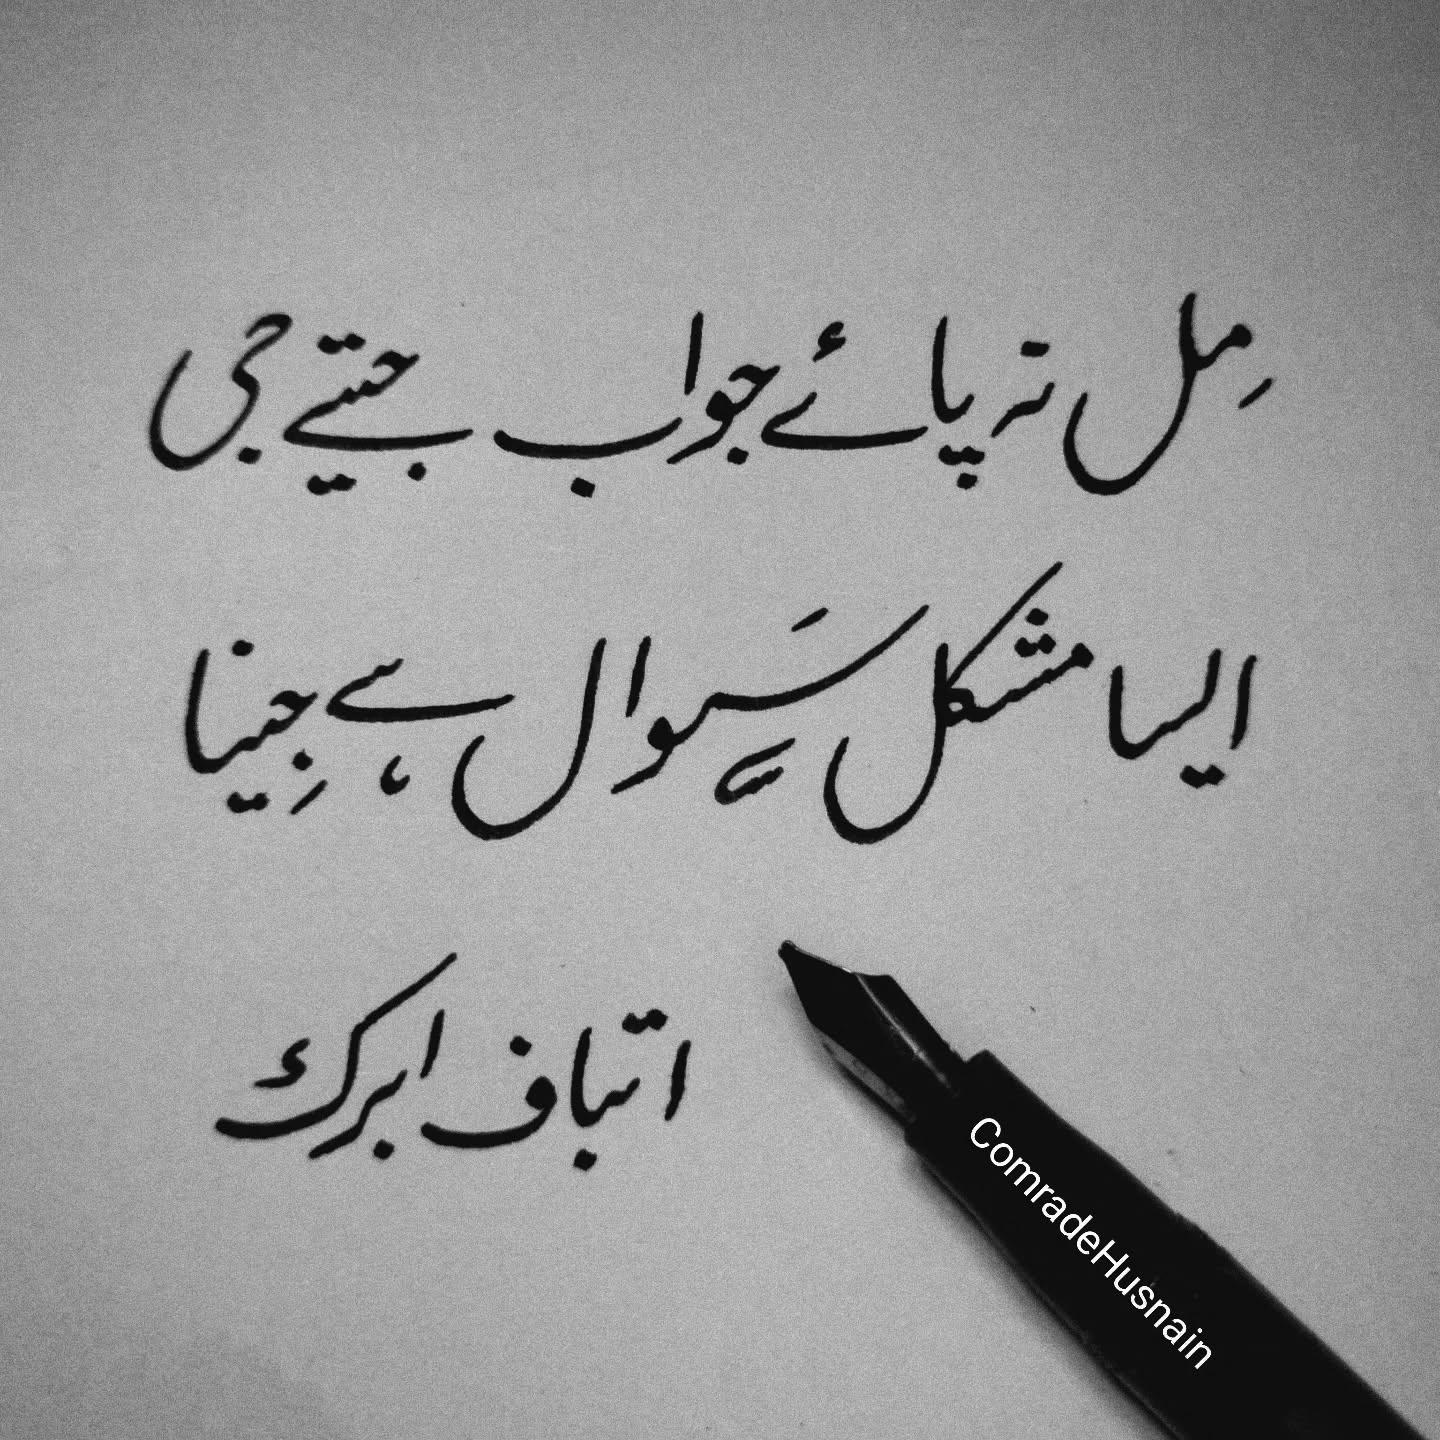 مِل نہ پائے جواب جیتے جی
ایسا مشکل سَوال ہے جِینا
اتباف ابرک
ComradeHusnain